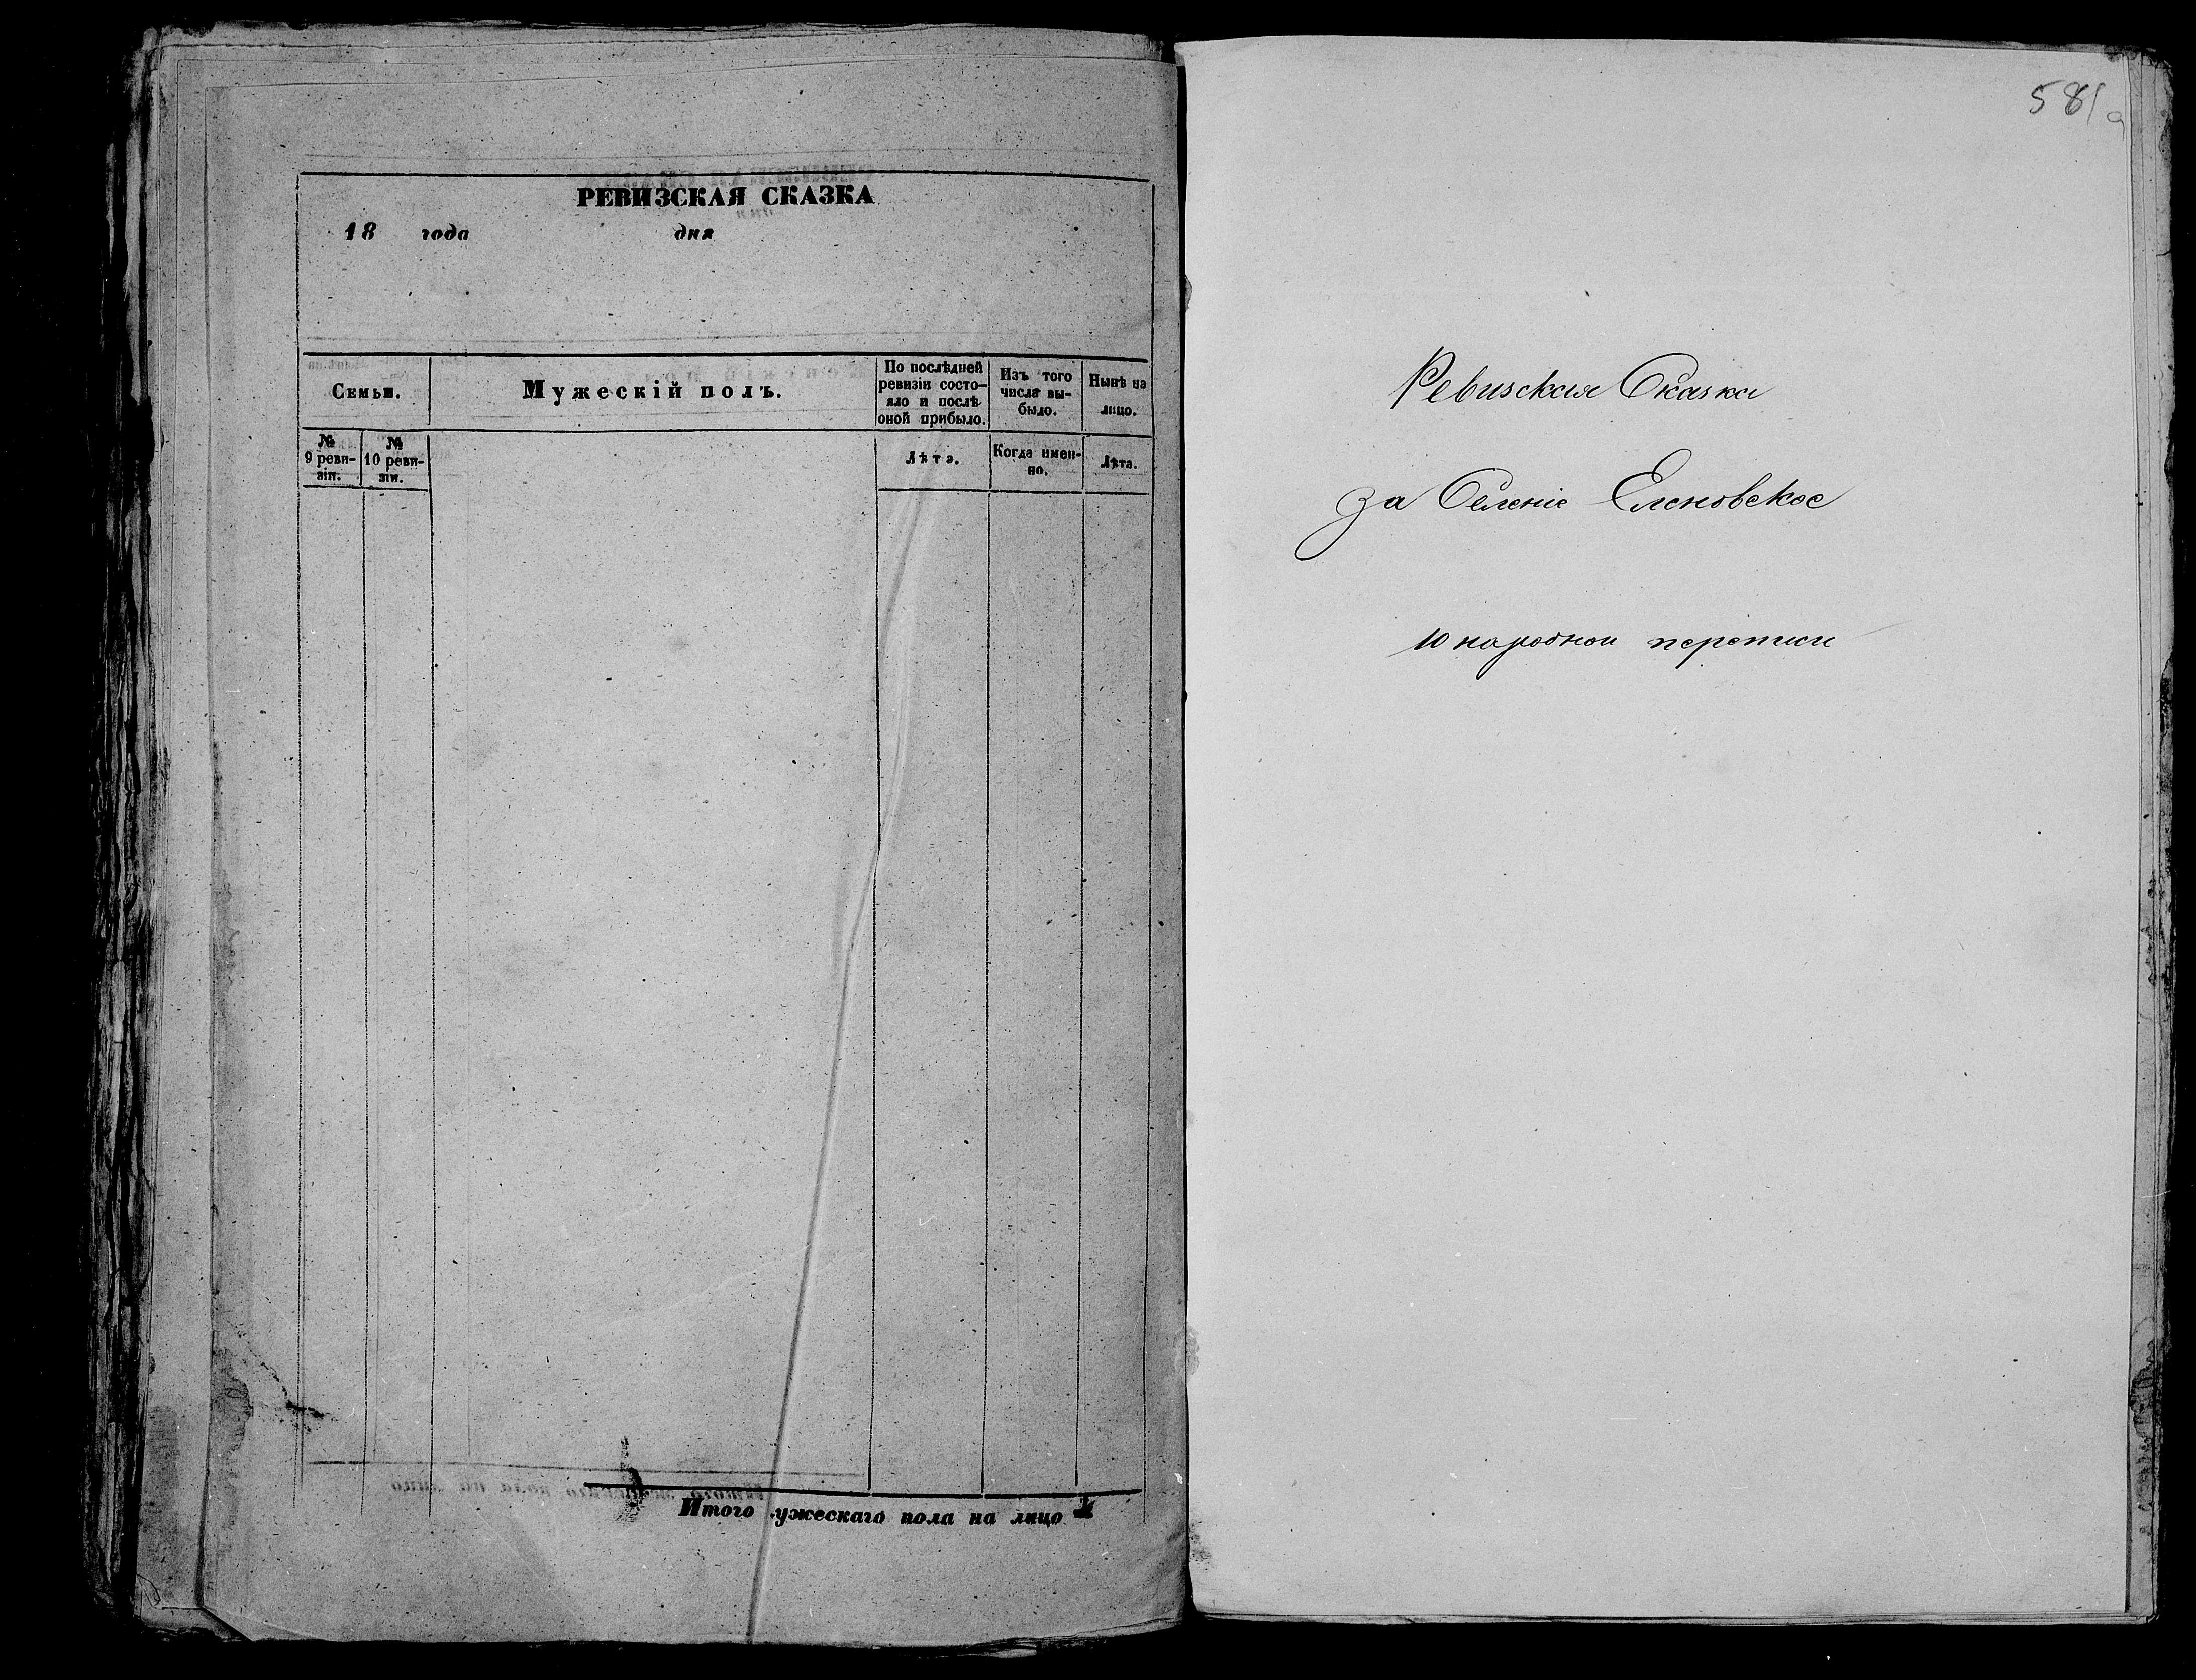 РЕВИЗСКАЯ СКАЗКА
18 года дня
Семьи.
Мужескій полъ.
По послѣдней
ревизіи состо-
яло и послѣ
оной прибыло.
Изъ того
числа вы-
было.
Нынѣ на
лицо.
№
9 реви-
зіи.
№
10 реви-
зіи.
Лѣта.
Когда имен-
но.
Лѣта.
Итого ужескаго пола на лицо
581а
Ревизская Сказка
За Селеніе Еленовское
10 народной переписи